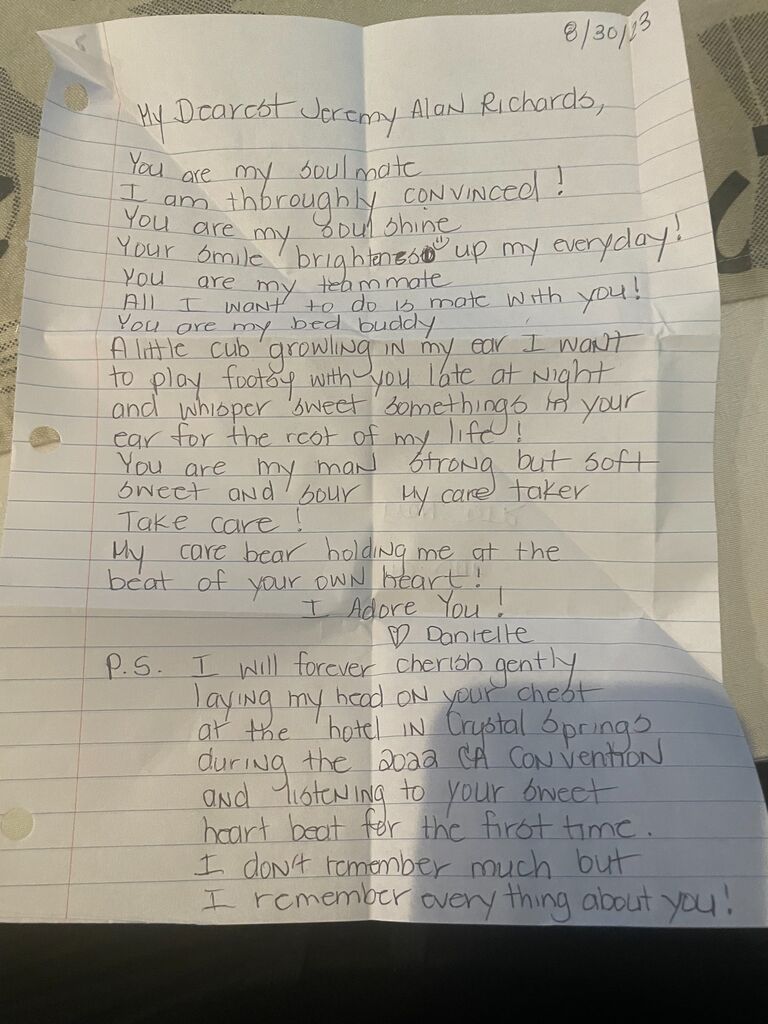 8/30/23
My Dearest Jeremy Alan Richards,
You are my soulmate
I am thoroughly CONVINCED!
You are my soul shine
Your smile brightens up my everyday!
You are my teammate
All I want to do is mate with you!
You are my bed buddy
A little cub growling in my ear I want
to play footsy with you late at night
and whisper sweet somethings in your
ear for the rest of my life!
You are my man strong but soft
sweet and sour My care taker
Take care!
My care bear holding me at the
beat of your own heart!
I Adore You!
♡ Danielle
P.S. I will forever cherish gently
laying my head on your chest
at the hotel in Crystal Springs
during the 2022 CA Convention
and listening to your sweet
heart beat for the first time.
I don't remember much but
I remember every thing about you!